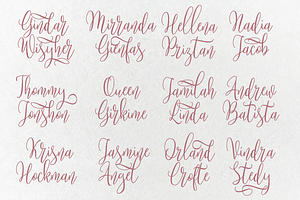 Gindar Mirranda Hellena Nadia
Wisyher Gienfas Priztan Jacob
Thommy Queen Jamilah Andrew
Jonshon Girkime Linda Batista
Krisna Jasmine Orland Vindra
Hockman Angel Crofte Stedy